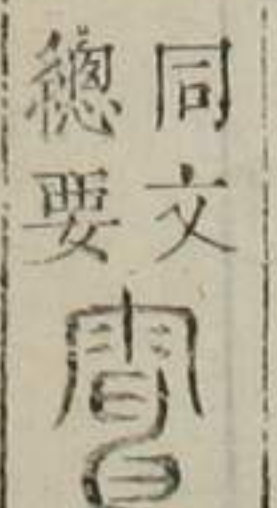 同文
總要